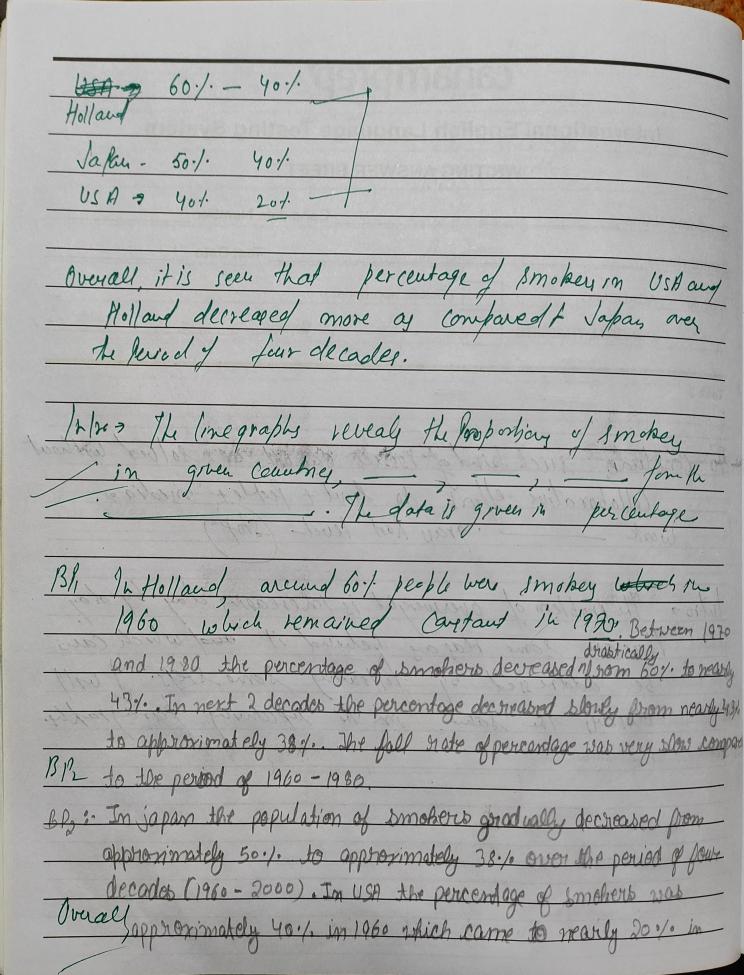 USA → 60% — 40%
Holland
Japan - 50% 40%
USA → 40% 20%
Overall, it is seen that percentage of smokers in USA and
Holland decreased more as compared to Japan over
the period of four decades.
Intro → The line graphs reveals the proportions of smokers
in given countries, ___, ___, ___ from the
___. The data is given in percentage
BP1 In Holland, around 60% people were smokers which in
1960 which remained constant in 1970. Between 1970
drastically
and 1980 the percentage of smokers decreased from 60% to nearly
43%. In next 2 decades the percentage decreased slowly from nearly 43%
to approximately 38%. The fall rate of percentage was very slow compare
BP2 to the period of 1960 - 1980.
BP2 :- In japan the population of smokers gradually decreased from
approximately 50% to approximately 38% over the period of four
decades (1960 - 2000). In USA the percentage of smokers was
Overall, approximately 40% in 1960 which came to nearly 20% in